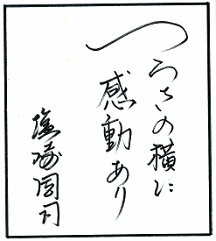 つらさの横に
感動あり
塩崎